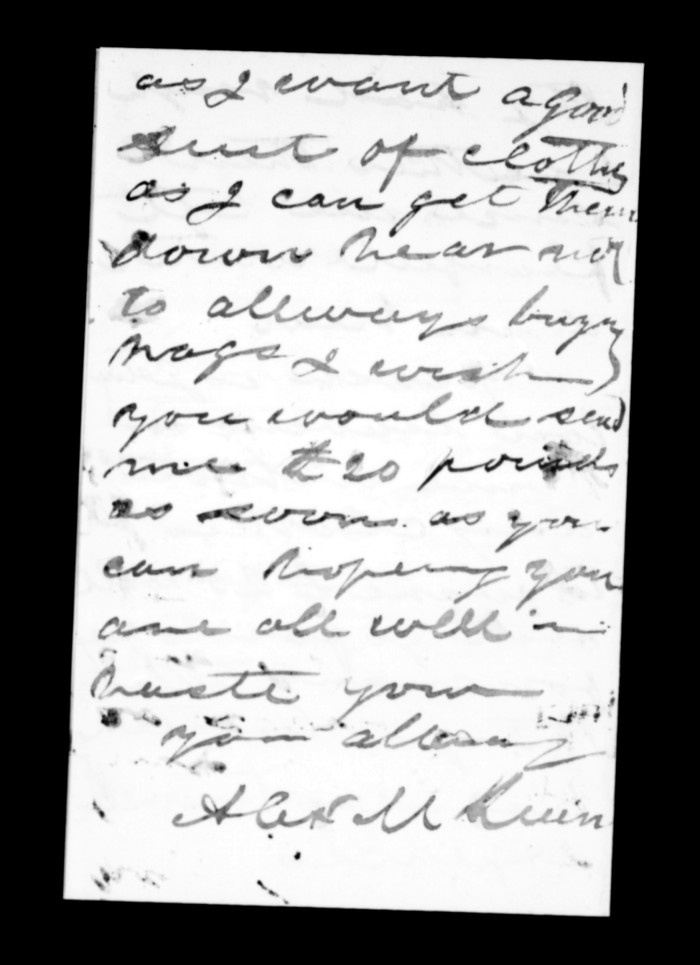 as I want a good
suit of cloths
as I can get them
down hear not
to allways buyg
rags I wish
you would send
me £ 20 pounds
as soon as you
can hopeing you
are all well in
haste your
you allway
Alex M